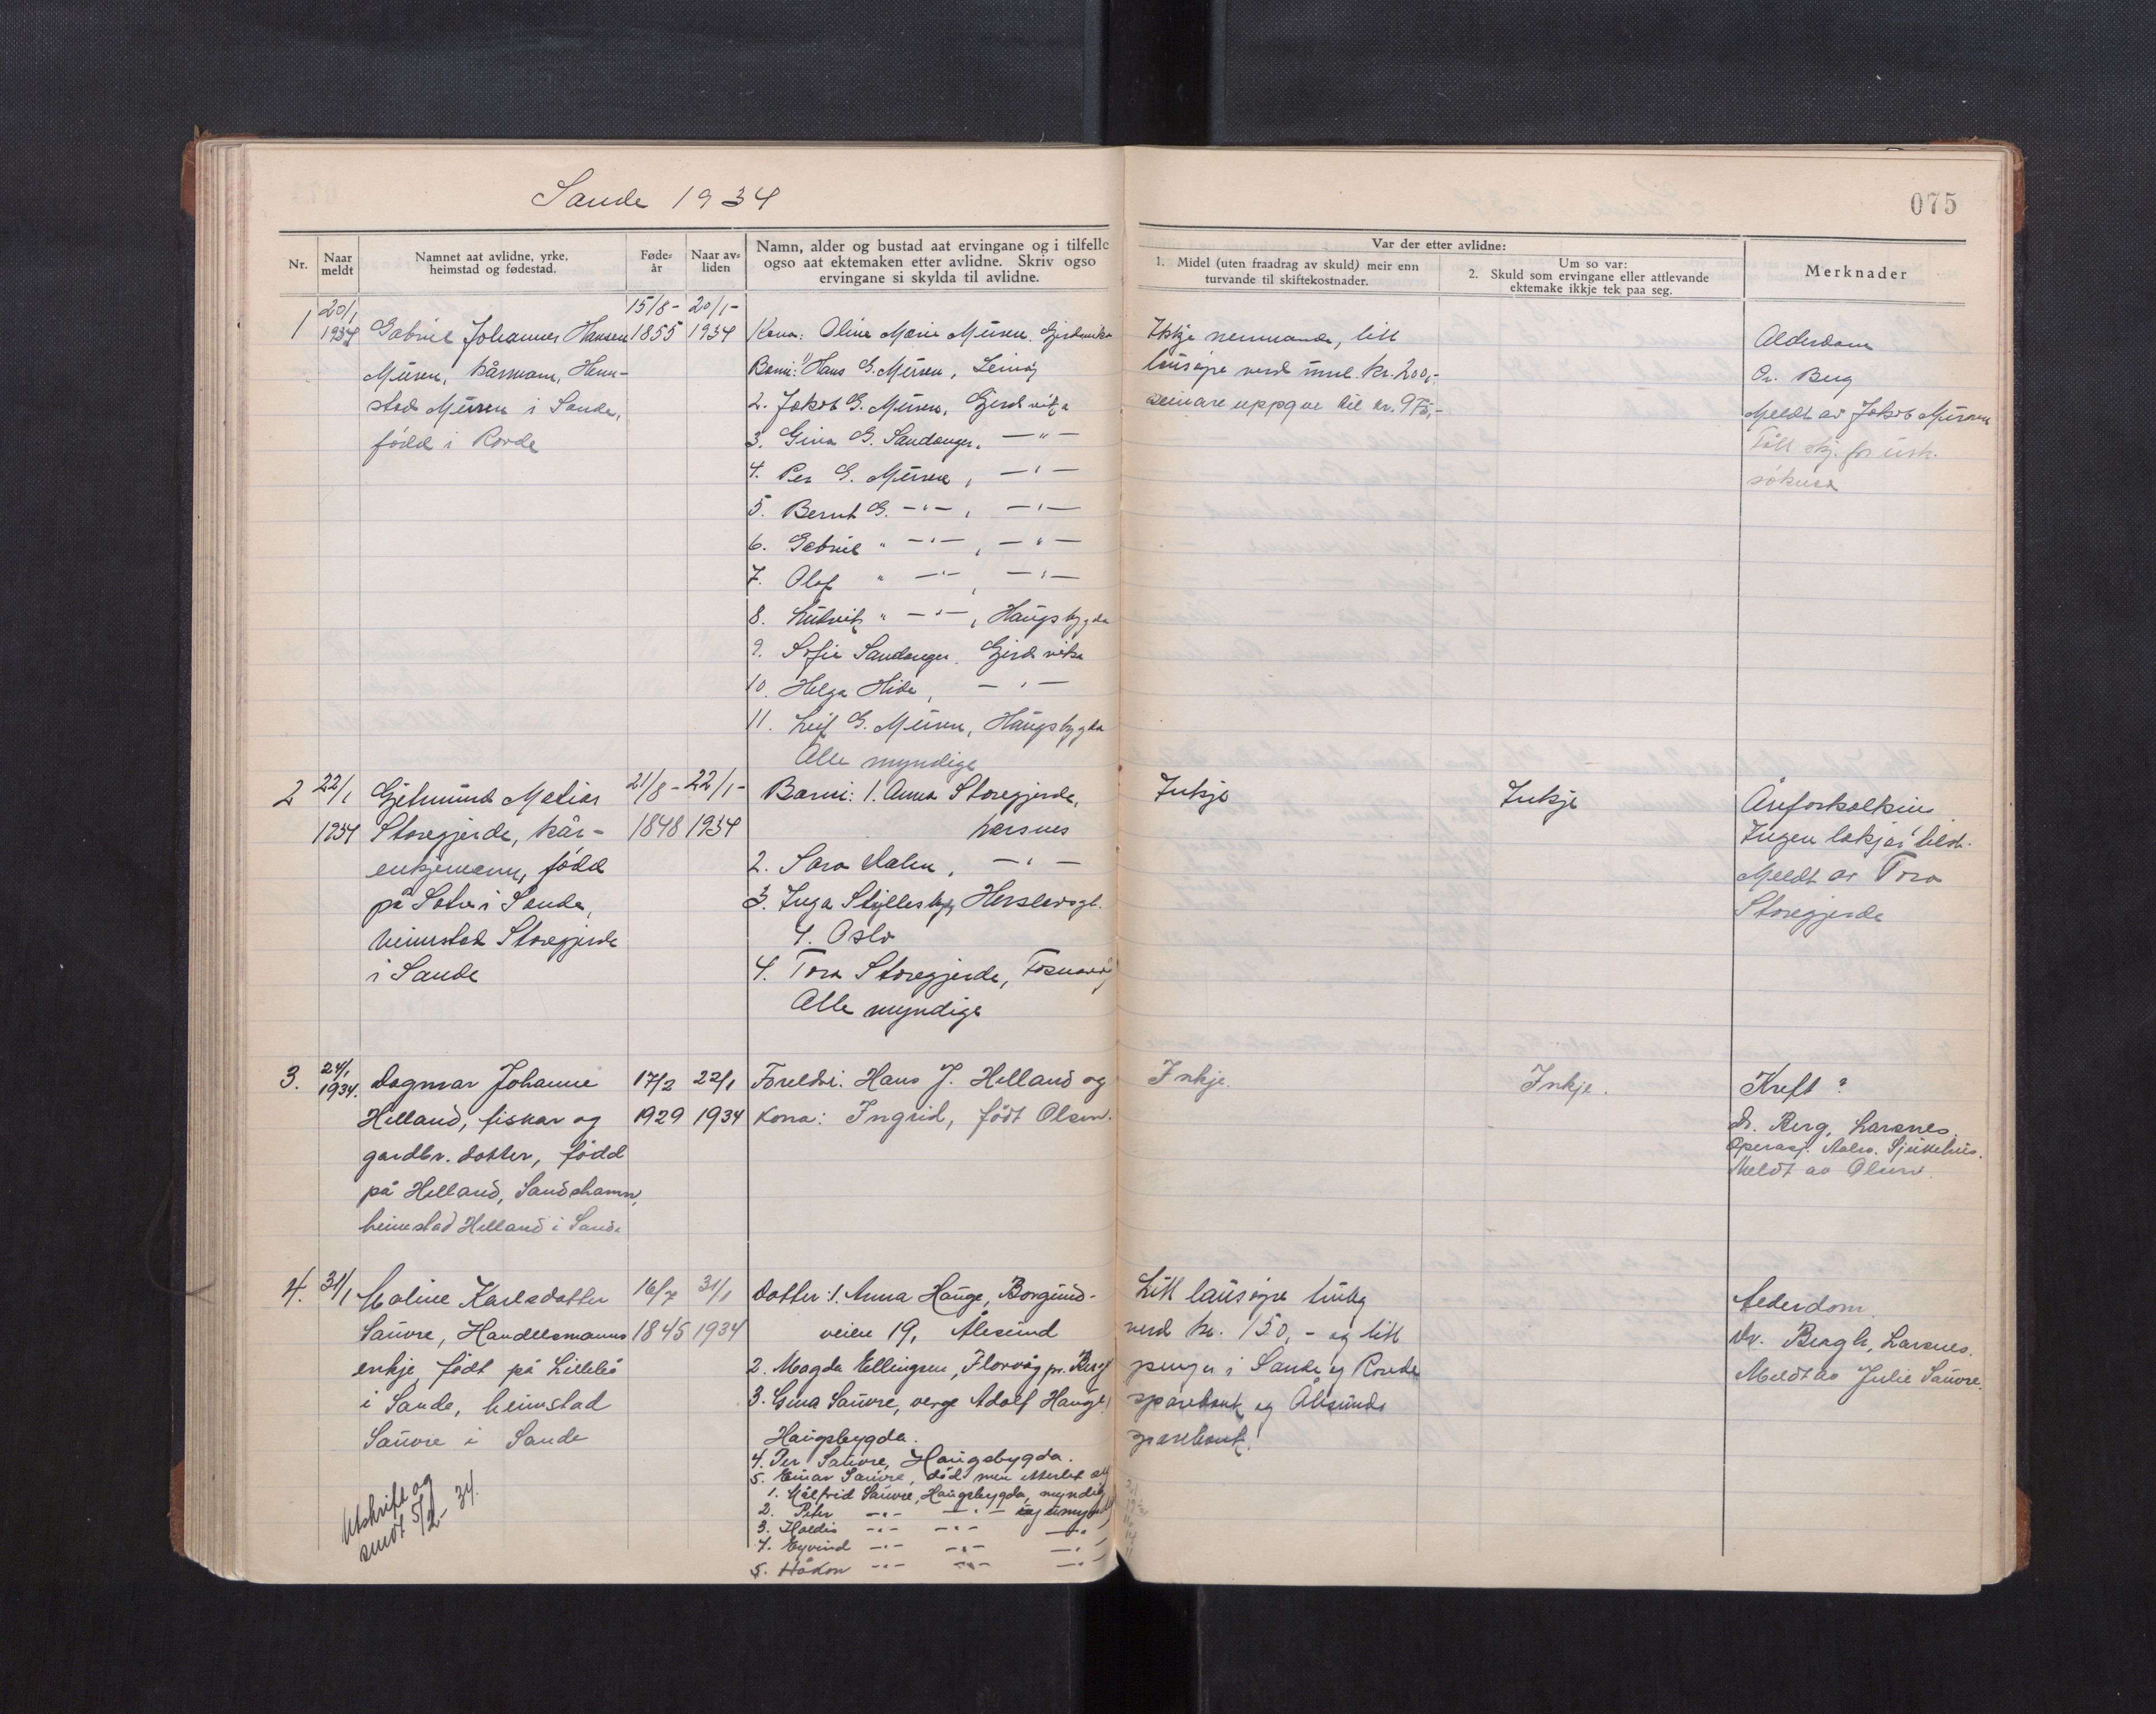 Sande 1934
075
Nr.
Naar meldt
Namnet aat avlidne, yrke, heimstad og fødestad.
Føde-år
Naar av-liden
Namn, alder og bustad aat ervingane og i tilfelle
ogso aat ektemaken etter avlidne. Skriv ogso
ervingane si skylda til avlidne.
Var der etter avlidne:
1. Midel (uten fraadrag av skuld) meir enn
turvande til skiftekostnader.
Um so var:
2. Skuld som ervingane eller attlevande
ektemake ikkje tek paa seg.
Merknader
1
20/1
1934
Gabriel Johannes Hansen
Müren, kårmann, Heim-
stad Müren i Sande,
född i Rovde
15/8-
1855
20/1-
1934
Kona: Oline Marie Müren, Gjerdsvika
Born: 1) Hans G. Müren, Leinöy
2. Jakob G. Müren, Gjerdsvika
3. Gina G. Sandanger, — " —
4. Per G. Müren, — " —
5. Bernt G. — " — , — " —
6. Gabriel " — " — , — " —
7. Olaf " — " — , — " —
8. Ludvik " — " — , Haugsbygda
9. Sofie Sandanger, Gjerdsvika
10. Helga Hide, — " —
11. Leif G. Müren, Haugsbygda
Alle myndige
Ikkje nemnande, litt
lausøyre verd kr. 200,-
seinare uppgve til kr.
Alderdom
Dr. Berg
Meldt av Jakob Müren
2
22/1
1934
Gjetmund Matias
Storegjerde, kår-
enkjemann, född
på Sætre i Sande,
heimstad Storegjerde
i Sande
21/8-
1848
22/1-
1934
Born: 1. Anna Storegjerde,
Larsnes
2. Sara Dalen, — " —
3. Inga Herslevsgt.
4. Oslo
4. Tora Storegjerde, Fosnavåg
Alle myndige
Inkje
Inkje
Åreforkalking
Ingen lækjar
Meldt av Tora
Storegjerde
3.
24/1
1934.
Dagmar Johanne
Helland, fiskar og
gardbr. dotter, född
på Helland, Sandshamn,
heimstad Helland i Sande
17/2
1929
22/1
1934
Foreldri: Hans J. Helland og
kona: Ingrid, födt Olsen.
Inkje.
Inkje.
Kreft?
Dr. Berg, Larsnes.
Operasj. Aales. Sjukehus.
Meldt av
4.
31/1
Maline Karlsdotter
Saure, Handelsmanns
enkje, födt på Lillebö
i Sande, heimstad
Saure i Sande
16/7
1845
31/1
1934
Dotter: 1. Anna Hauge, Borgund-
veien 19, Ålesund
2. Magda Ellingsen, Florvåg pr. Bergen
3. Gina Saure, verge Adolf Hauge,
Haugsbygda.
4. Per Saure, Haugsbygda.
5. Einar Saure, död men etterlet seg
1. Målfrid Saure, Haugsbygda, myndig
2. Peter — " — — " — umyndig
3. Haldis — " — — " — — " —
4. Eyvind — " — — " — — " —
5. Håkon — " — — " — — " —
Litt lausøyre
verd kr. 150,- og litt
pengar i Sande og Rovde
sparebank og Ålesunds
sparebank.
Alderdom
dr. Bergh, Larsnes.
Meldt av Julie Saure.
Utskrift og
sendt 5/2-34.